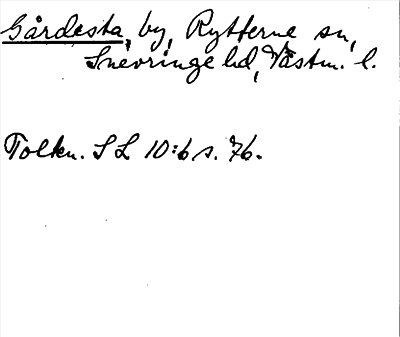 Gårdesta, by, Rytterne sn,
Snevringe hd, Västm. l.
Tolkn. SL 10:6 s. 76.